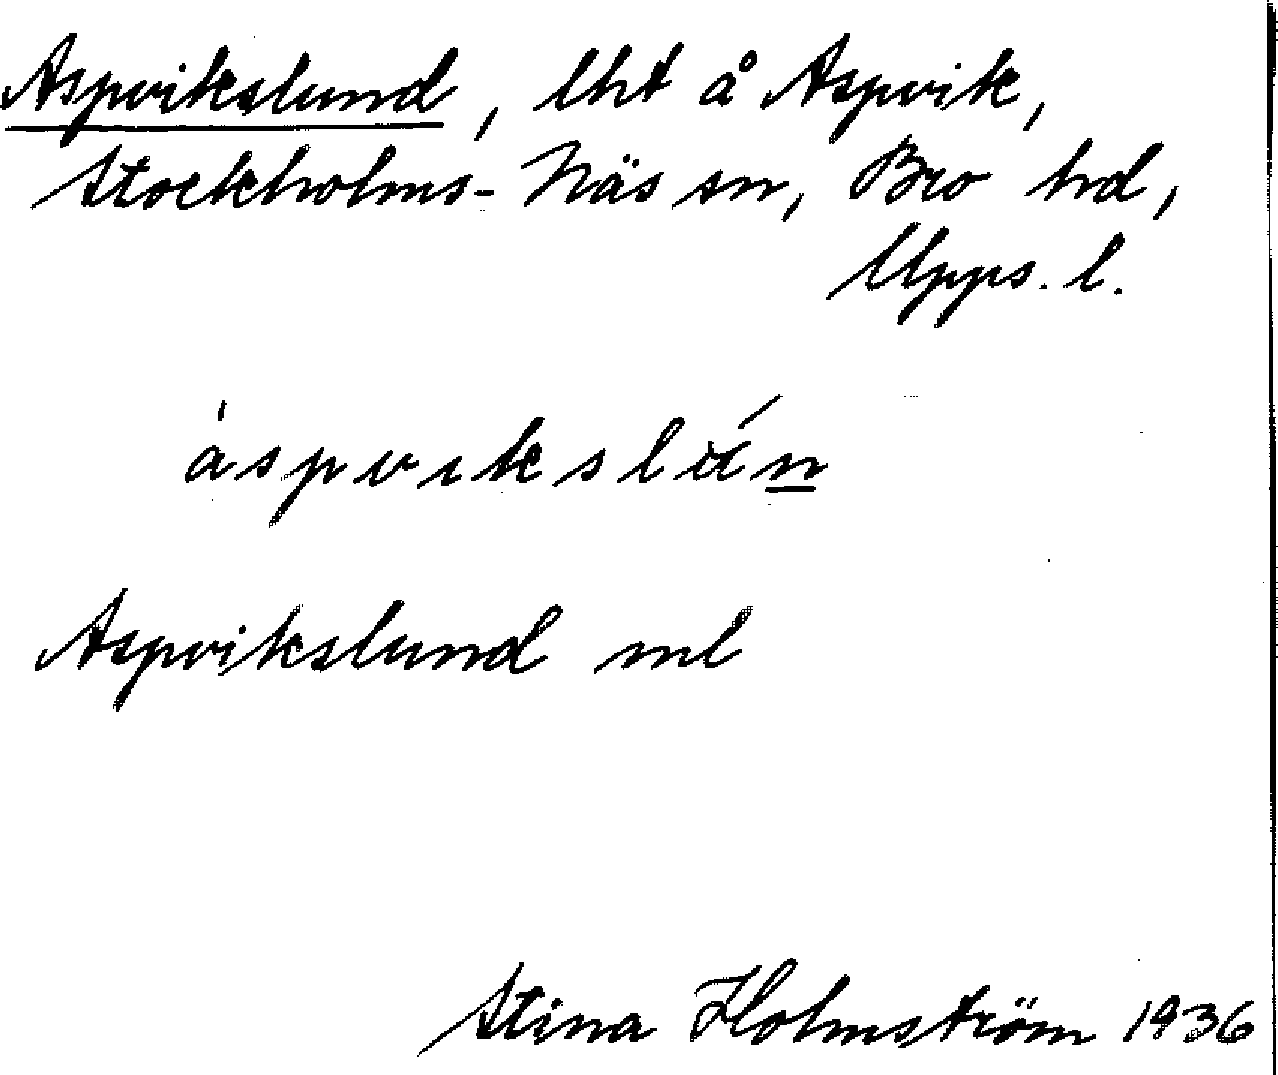 Aspvikslund, lht å Aspvik,
Stockholms-Näs sn, Bro hd,
Upps. l.
Aspvikslund ml
Stina Holmström 1936